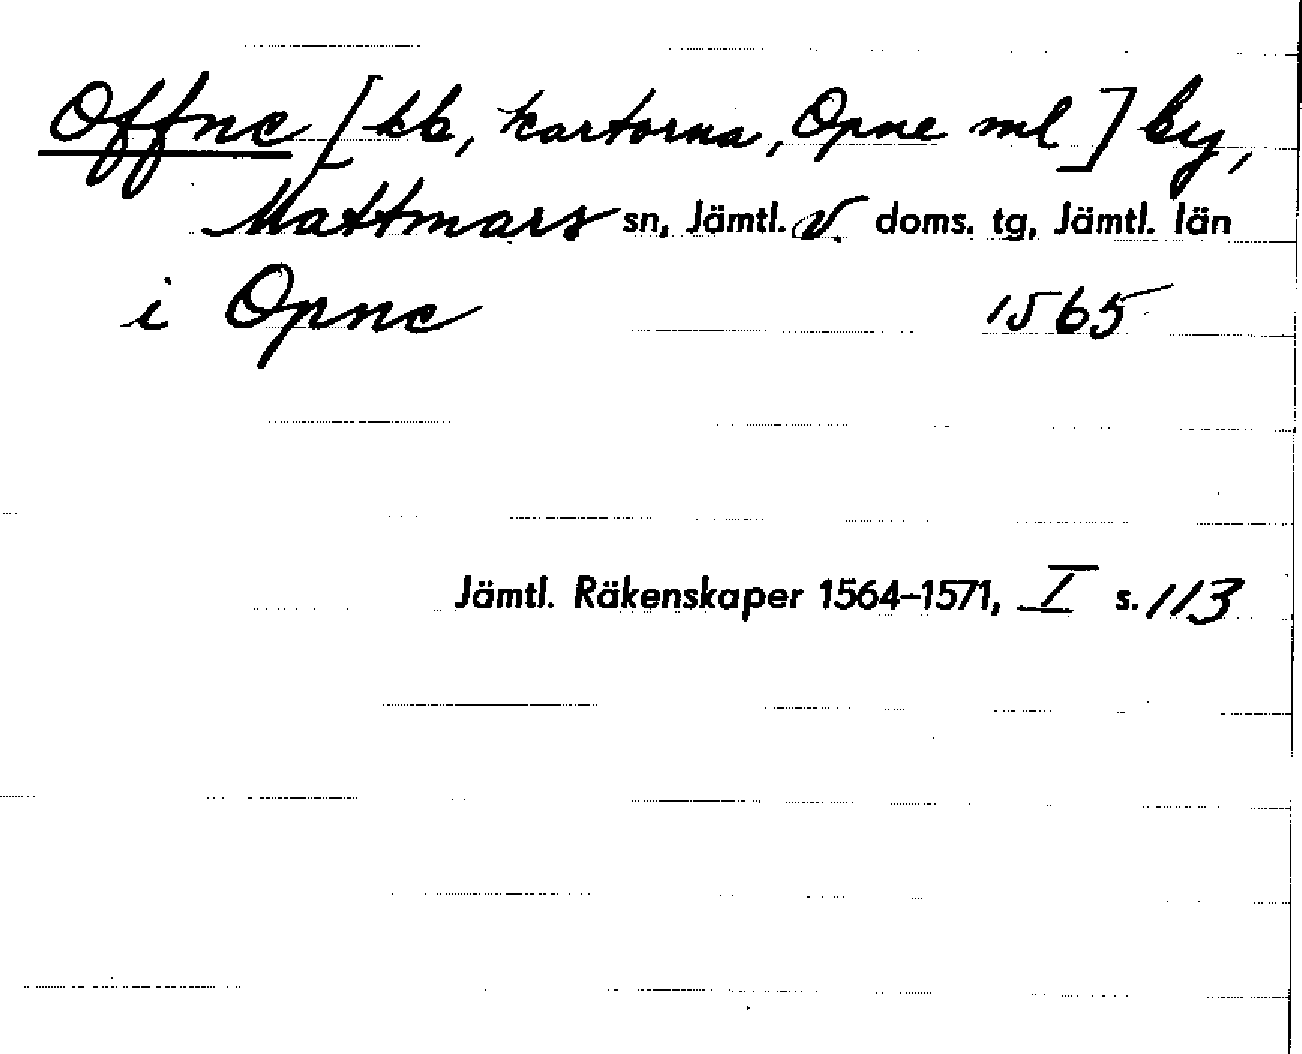 Offne [kb, kartorna, Opne ml] by,
Mattmars sn, Jämtl. v. doms. tg, Jämtl. län
i Opne 1565
Jämtl. Räkenskaper 1564-1571, I s. 113